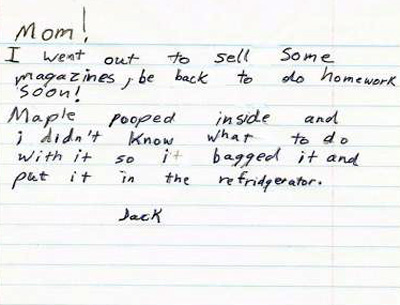 Mom!
I went out to sell some
magazines, be back to do homework
soon!
Maple pooped inside and
i didn't know what to do
with it so it bagged it and
put it in the refridgerator.
Jack